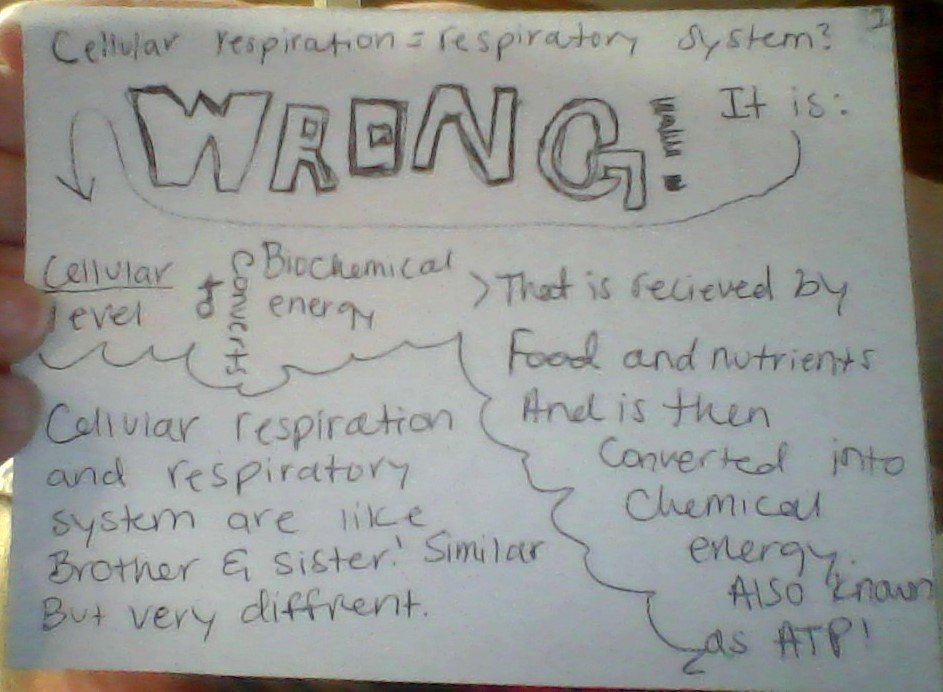 Cellular respiration = respiratory system?
WRONG! It is:
Cellular level
& converts
Biochemical energy
> That is recieved by
Food and nutrients
And is then
Converted into
Chemical
energy.
Also known
as ATP!
Cellular respiration
and respiratory
system are like
Brother & sister! Similar
But very diffrent.